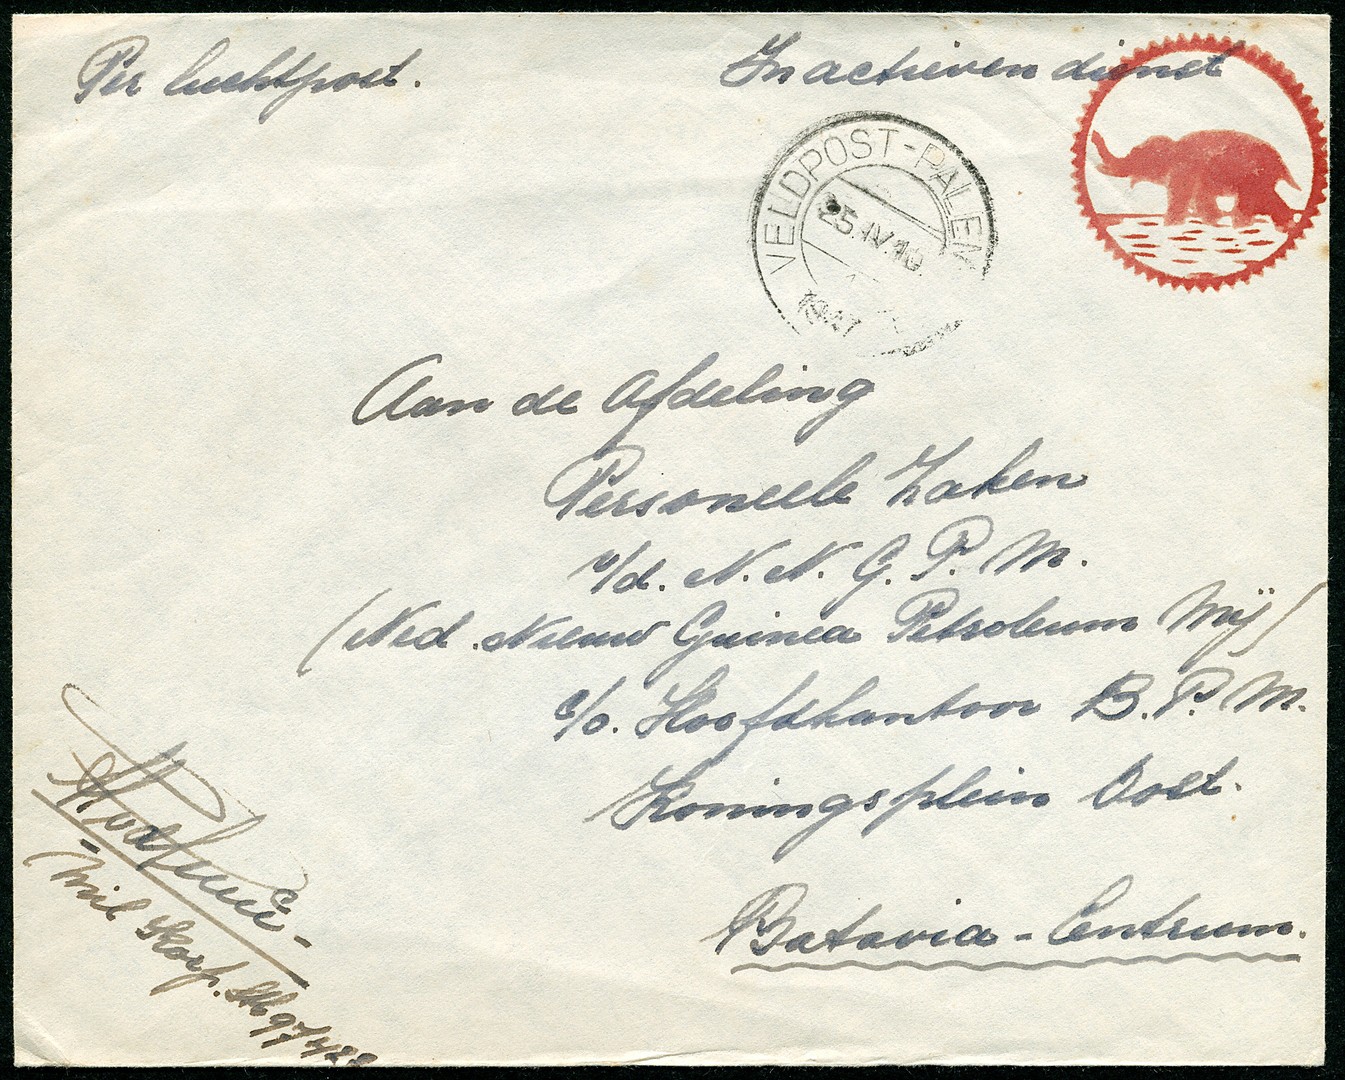 Per luchtpost.
In actieven dienst
VELDPOST-PALEM
25.IV.10
1947
Aan de Afdeling
Personeele Zaken
v/d. N. N. G. P. M.
(Ned. Nieuw Guinea Petroleum Mij)
c/o. Hoofdkantoor B. P. M.
Koningsplein Oost.
Batavia - Centrum.
Mil Korp.